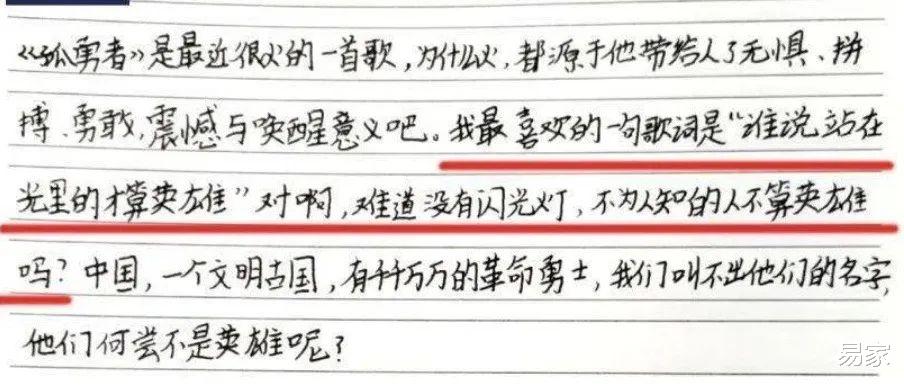 《孤勇者》是最近很火的一首歌，为什么火，都源于他带给人了无惧、拼
搏、勇敢，震憾与唤醒意义吧。我最喜欢的一句歌词是“谁说站在
光里的才算英雄”对啊，难道没有闪光灯，不为人知的人不算英雄
吗？中国，一个文明古国，有千千万万的革命勇士，我们叫不出他们的名字，
他们何尝不是英雄呢？
易家